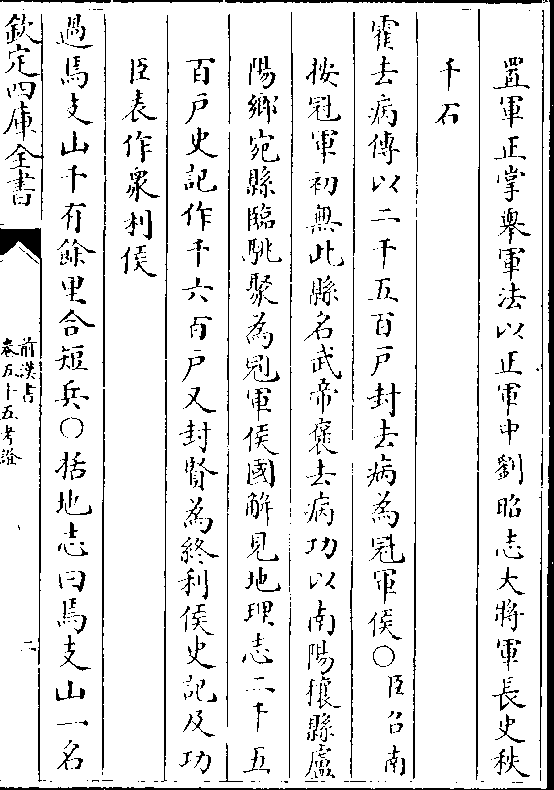 置軍正掌舉軍法以正軍中劉昭志大將軍長史秩
千石
霍去病傳以二千五百戸封去病為冠軍侯〇臣召南
按冠軍初無此縣名武帝褒去病功以南陽穰縣盧
陽鄉宛縣臨駣聚為冠軍侯國解見地理志二千五
百戸史記作千六百戸又封賢為終利侯史記及功
臣表作衆利侯
過焉支山千有餘里合短兵〇括地志曰焉支山一名
欽定四庫全書
前漢書
卷五十五考證
二